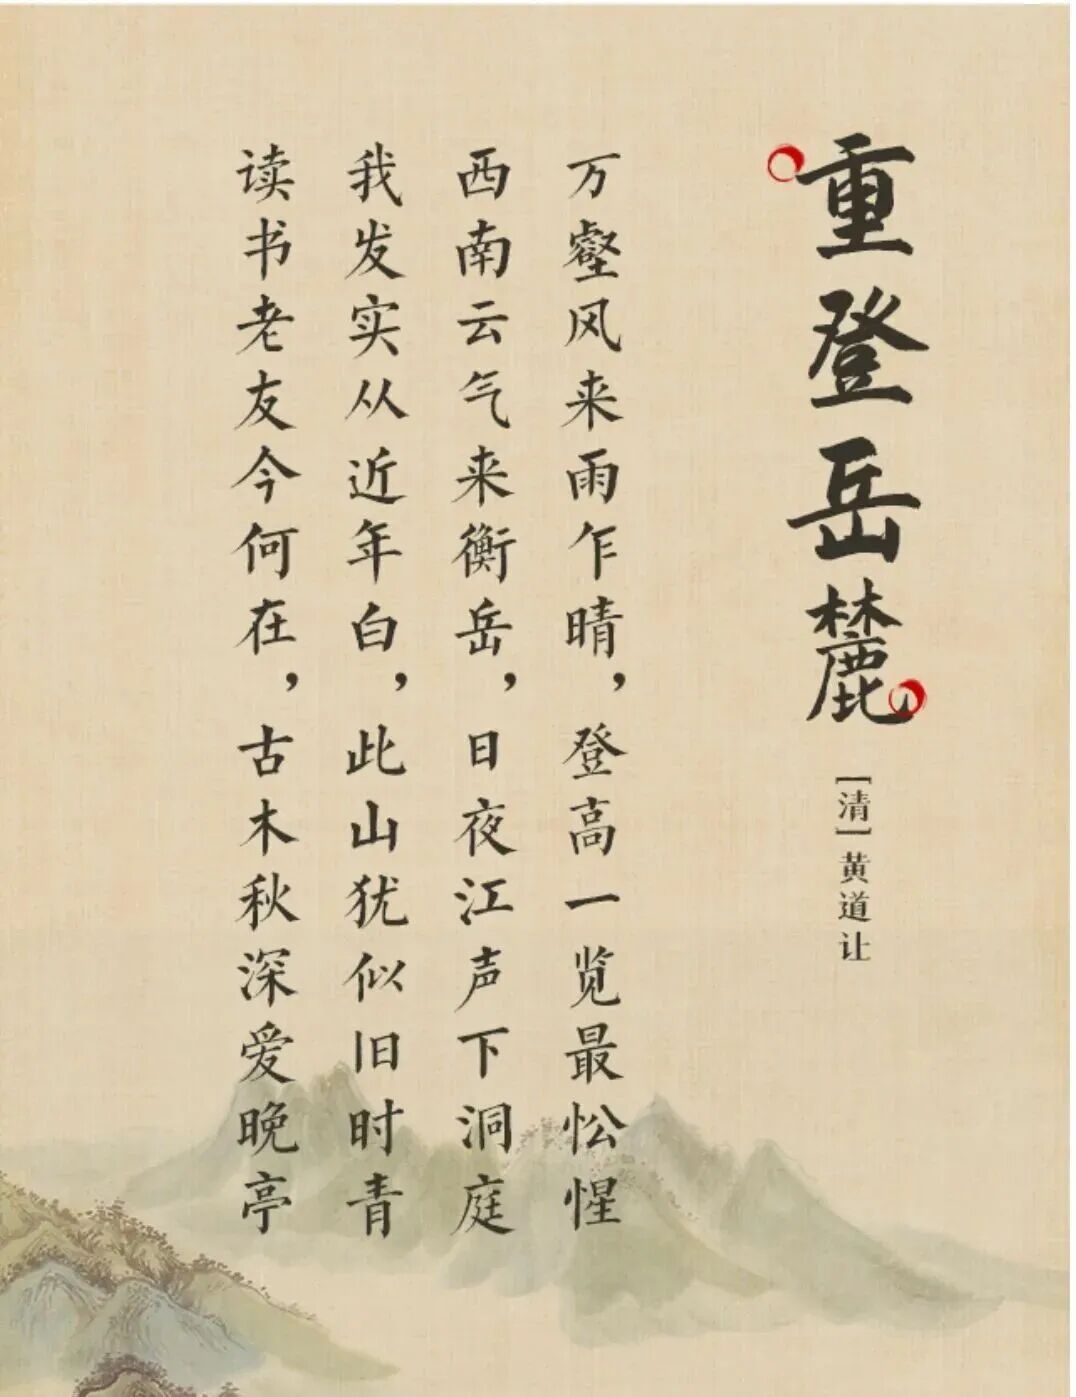 重登岳麓
[清]黄道让
万壑风来雨乍晴，登高一览最忪惺
西南云气来衡岳，日夜江声下洞庭
我发实从近年白，此山犹似旧时青
读书老友今何在，古木秋深爱晚亭